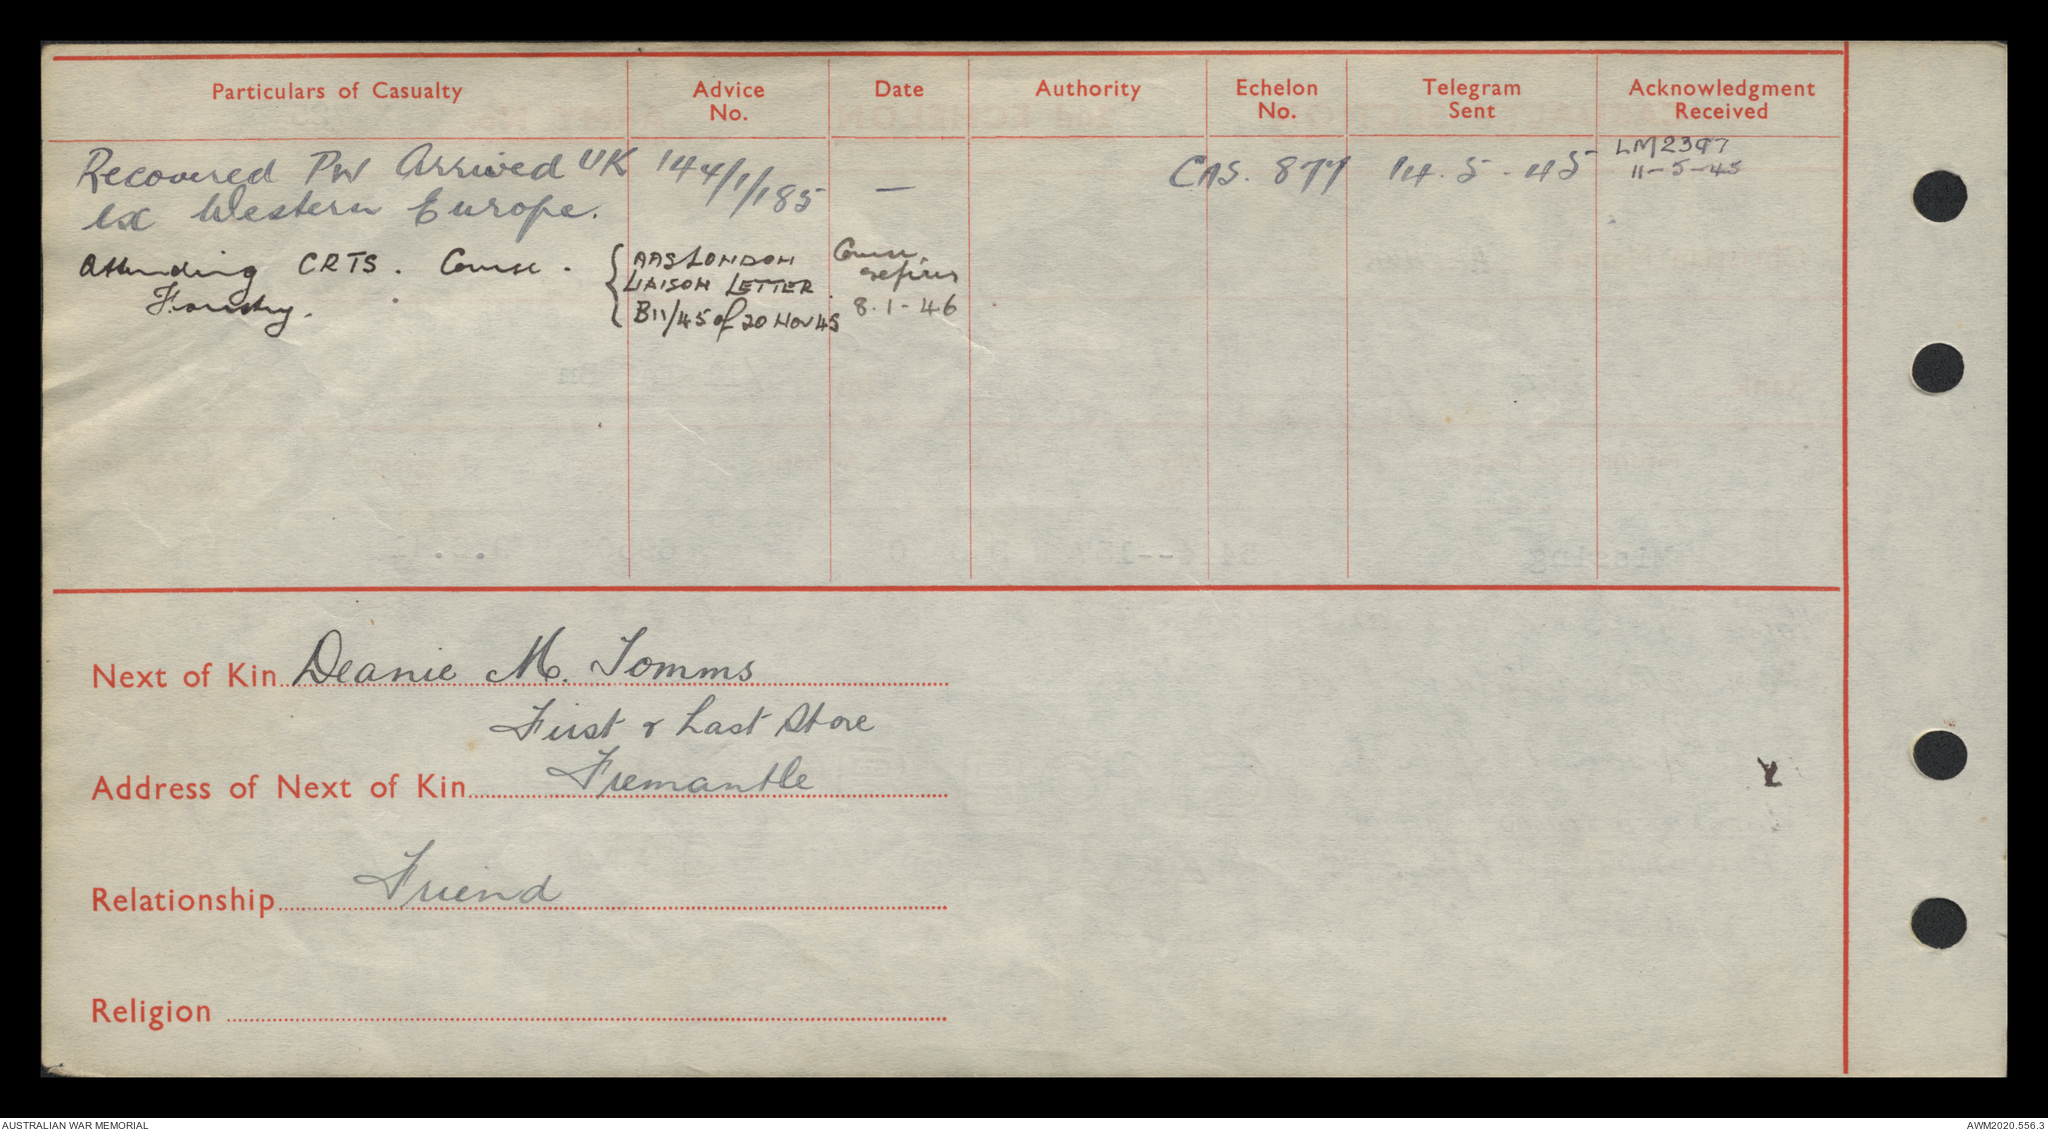 Particulars of Casualty
Advice No.
Date
Authority
Echelon No.
Telegram Sent
Acknowledgment Received
Recovered PW Arrived UK 144/1/185 — CAS. 877 14.5.45 LM2397
ex Western Europe. 11-5-45
Attending CRTS. Course. { AAS LONDON Course
LIAISON LETTER. expires
Forestry. B11/45 of 20 NOV 45 8.1-46
Next of Kin Deanie M. Tomms
First & Last Store
Address of Next of Kin Fremantle
Relationship Friend
Religion
AUSTRALIAN WAR MEMORIAL
AWM2020.556.3